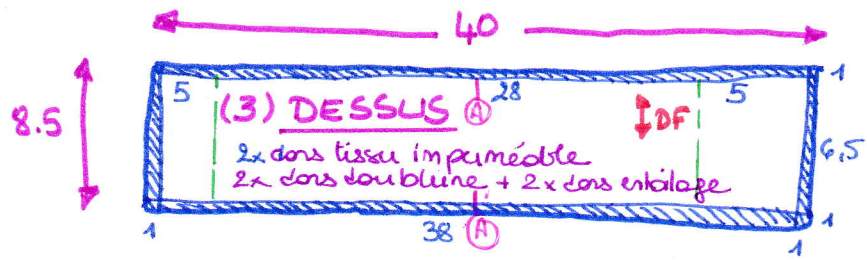 40
1
5 28 5
8.5 (3) DESSUS A DF
2x dans tissu imperméable 6,5
2x dans doublure + 2x dans entoilage
1 38 A 1
1